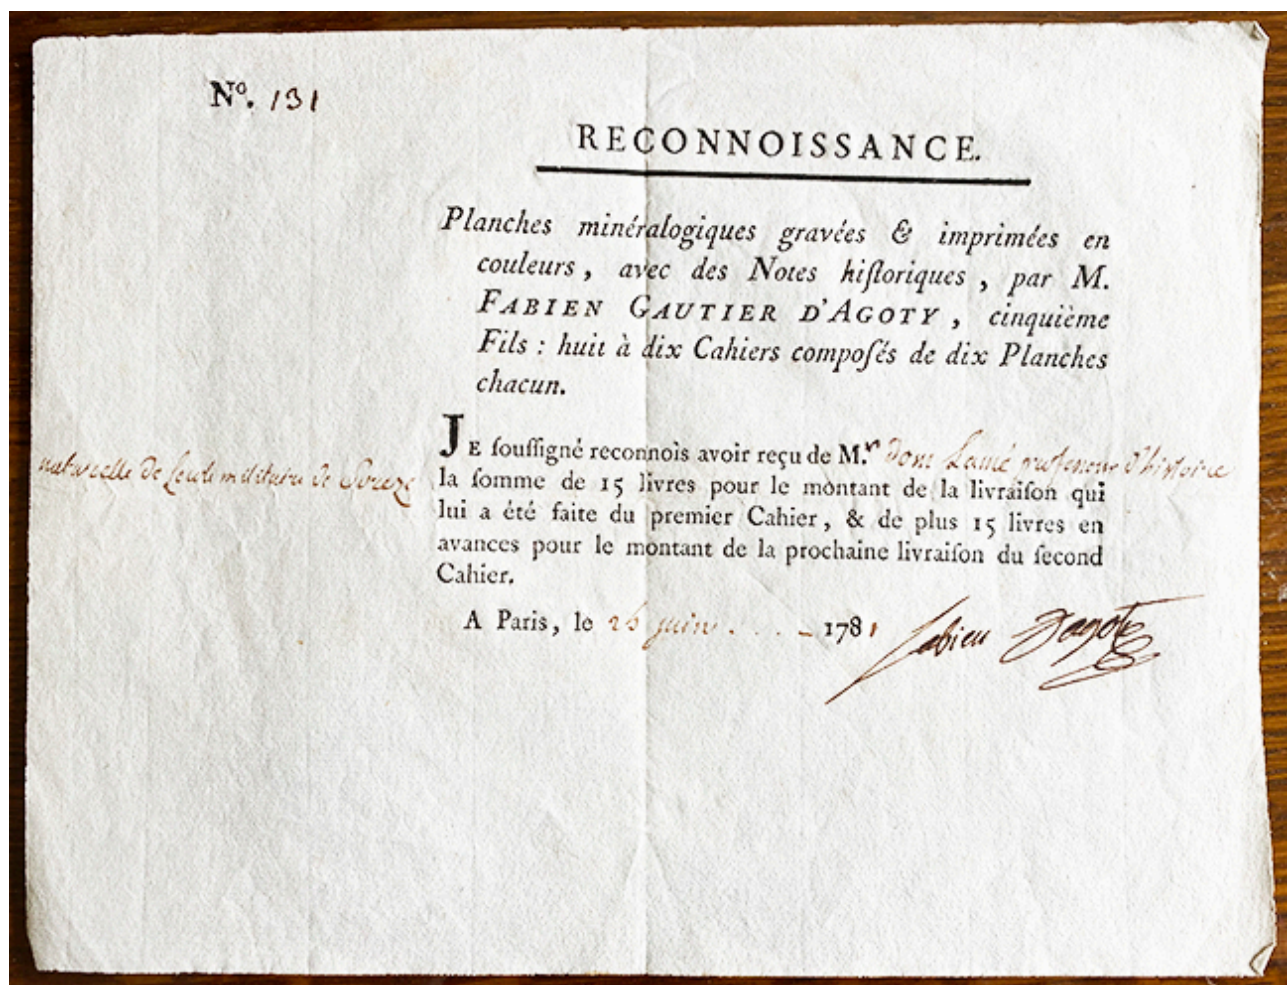 Nº. 131
RECONNOISSANCE.
Planches minéralogiques gravées & imprimées en
couleurs, avec des Notes hiſtoriques, par M.
FABIEN GAUTIER D'AGOTY, cinquième
Fils : huit à dix Cahiers compoſés de dix Planches
chacun.
JE ſouſſigné reconnois avoir reçu de M.r dom Lamé professeur d'histoire
naturelle de lecole militaire de Soreze
la ſomme de 15 livres pour le montant de la livraiſon qui
lui a été faite du premier Cahier, & de plus 15 livres en
avances pour le montant de la prochaine livraiſon du ſecond
Cahier.
A Paris, le juin . . . 1781 fabien Dagoty